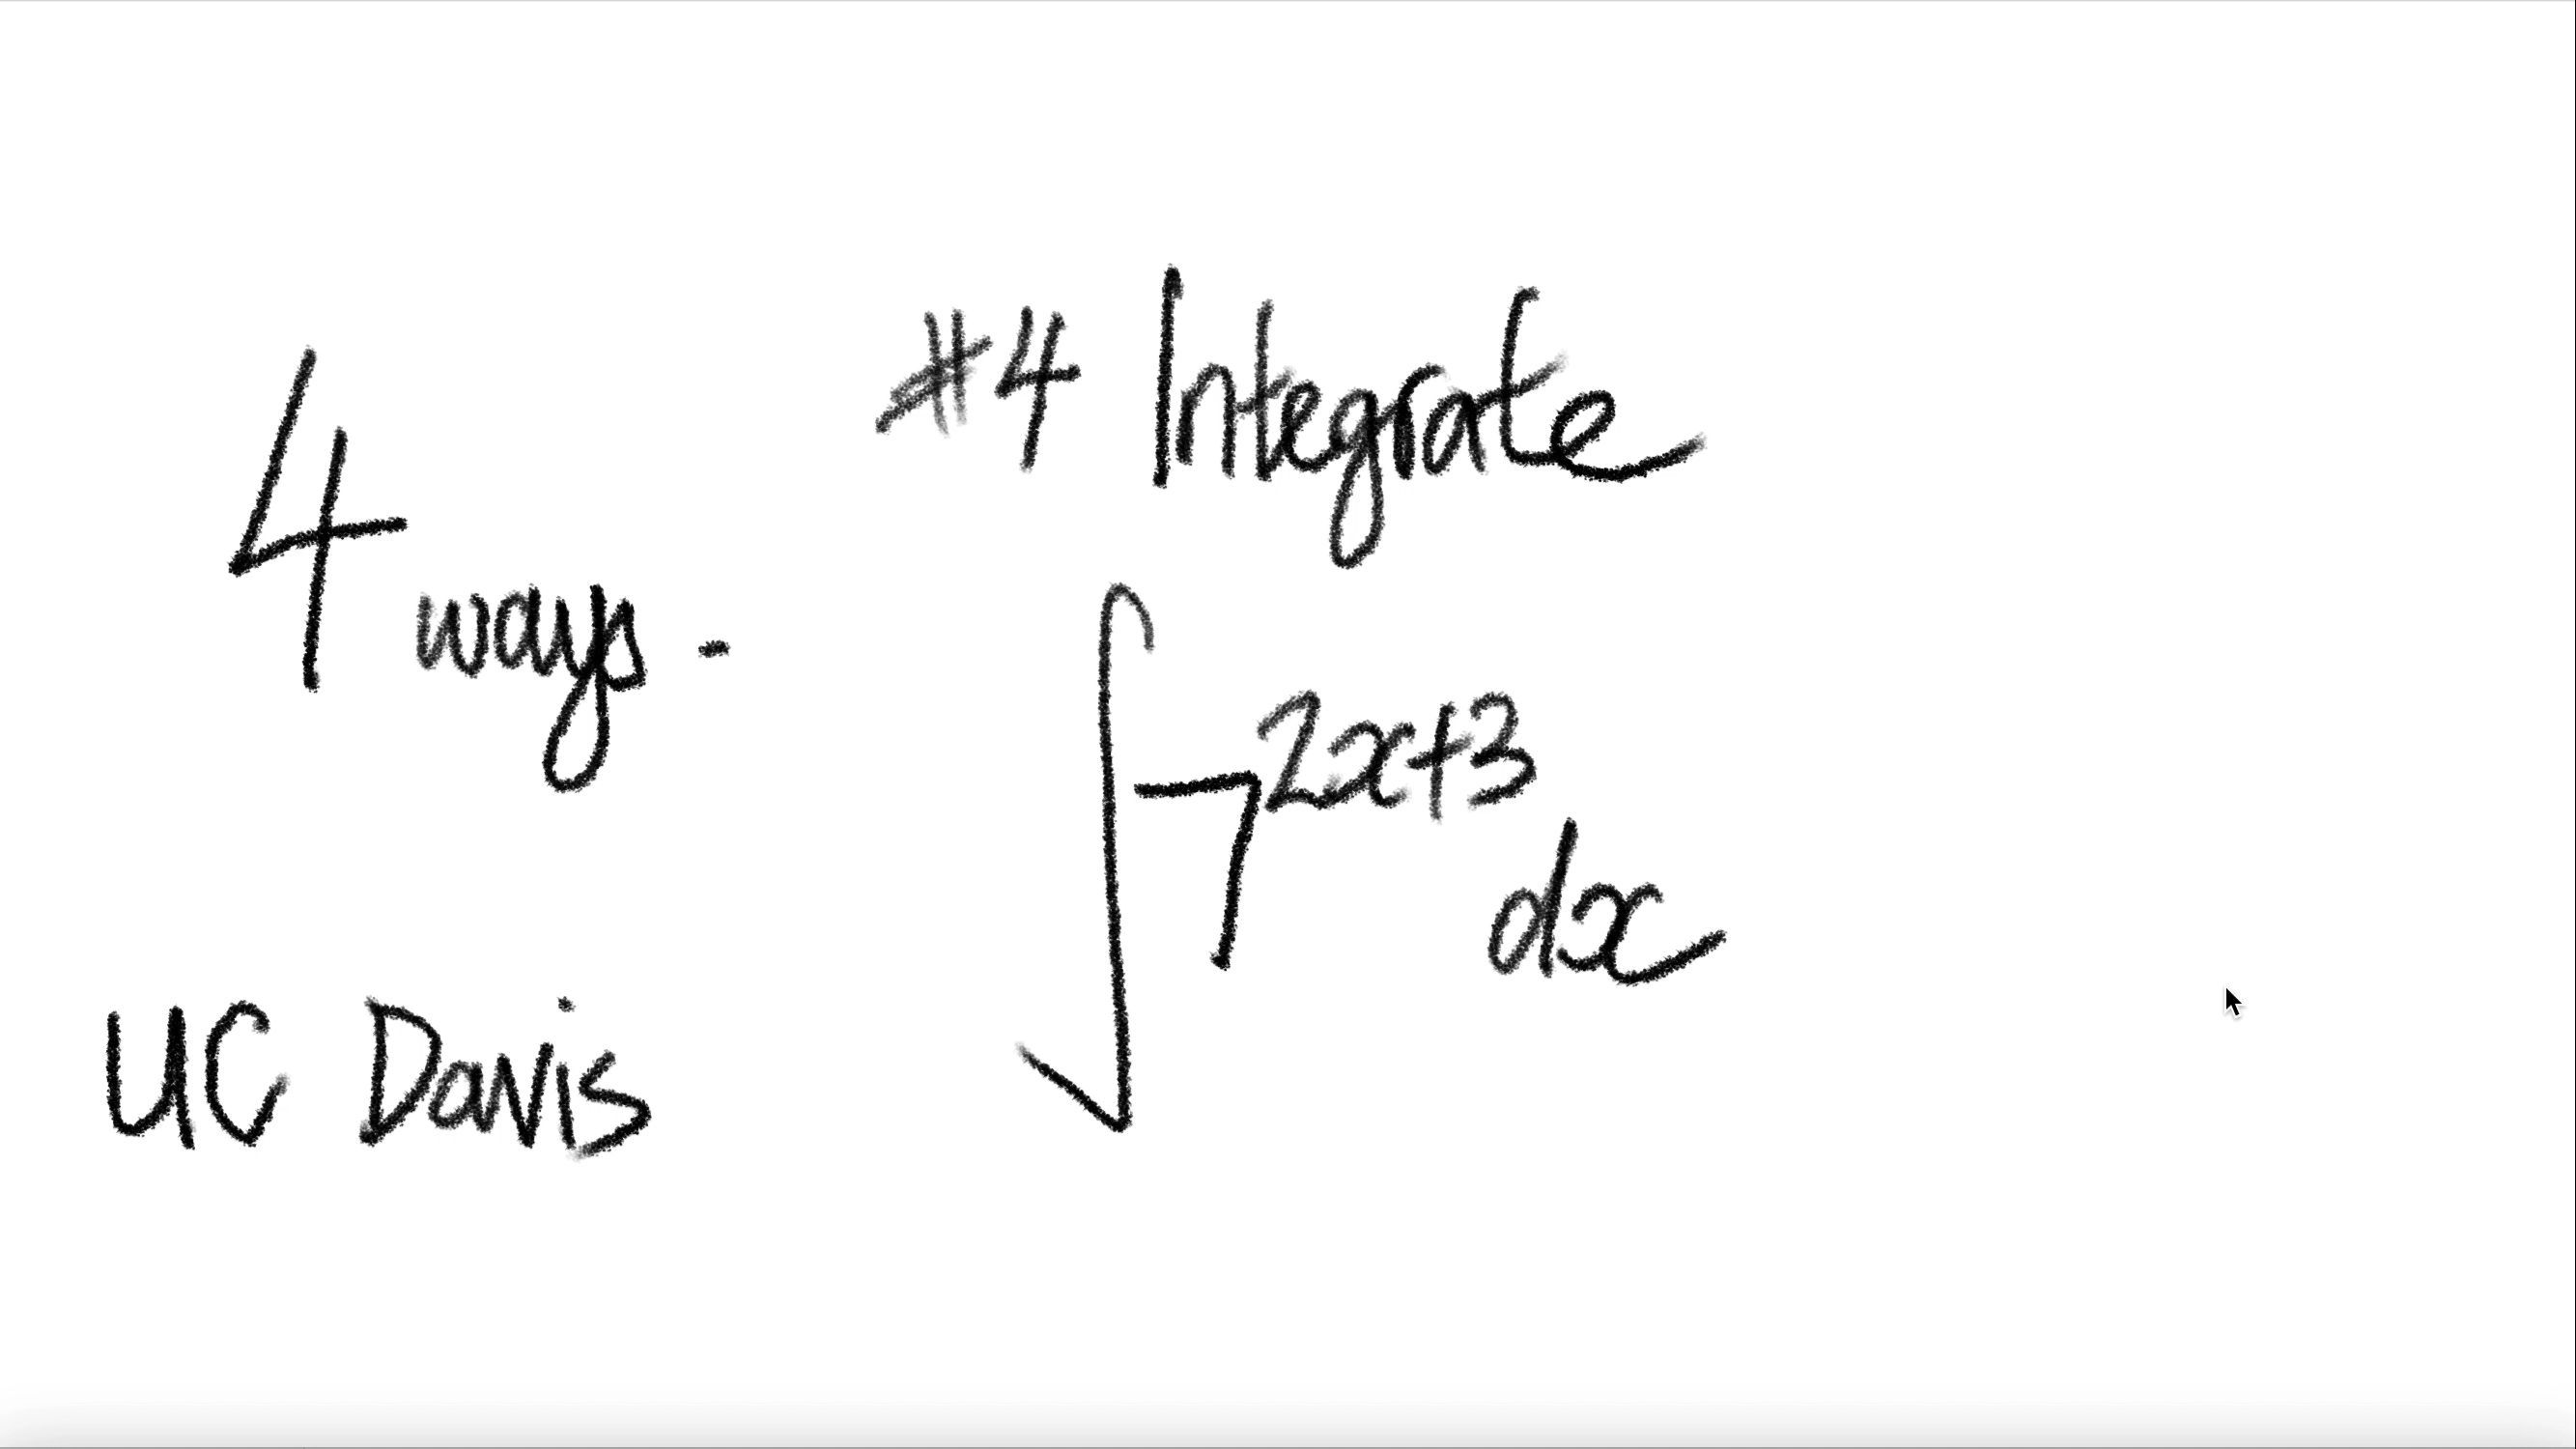 #4 Integrate
4 ways -
∫7^{2x+3} dx
UC Davis